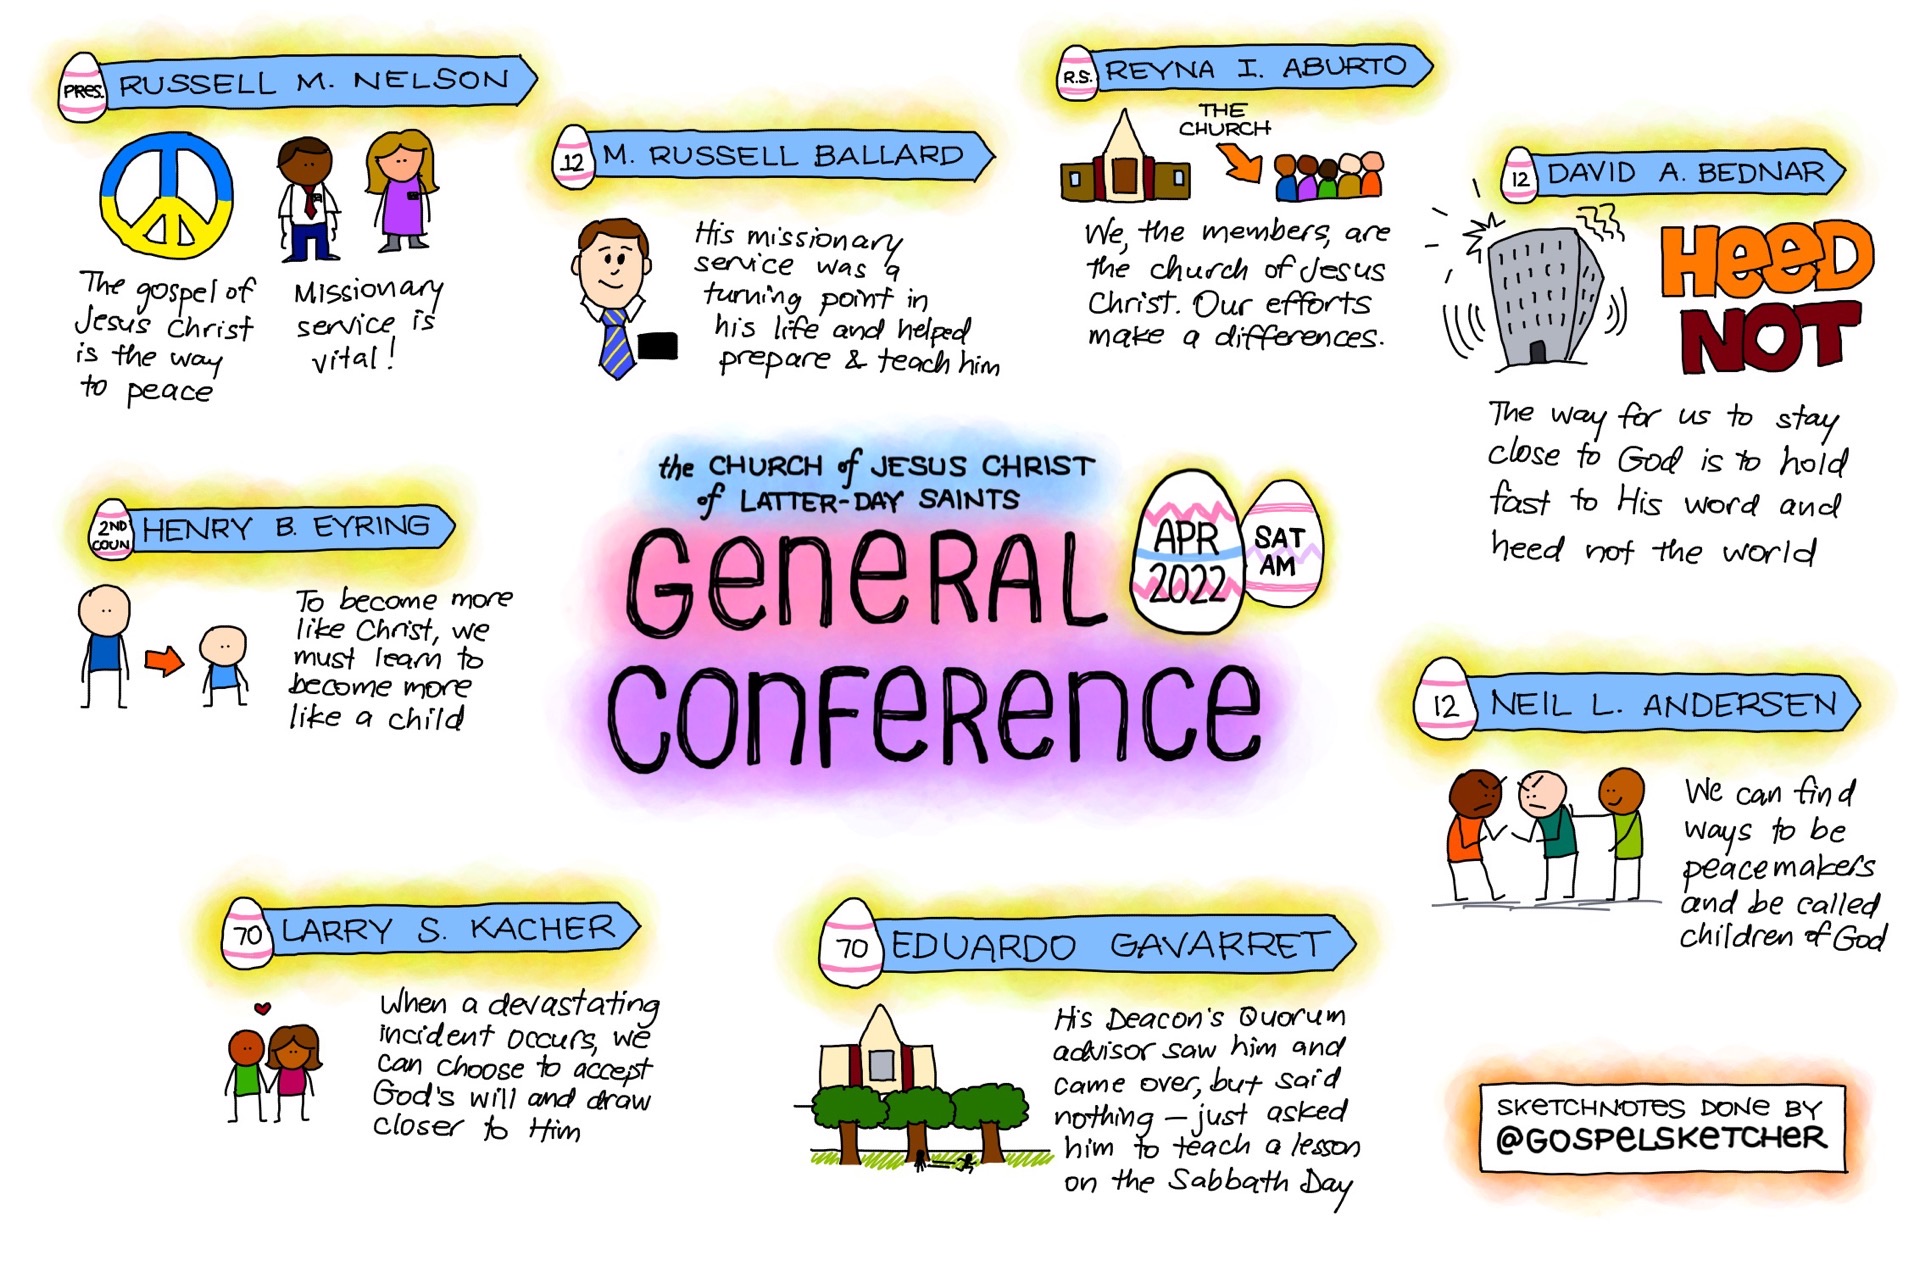 PRES.
RUSSELL M. NELSON
The gospel of
Jesus Christ
is the way
to peace
Missionary
service is
vital!
12
M. RUSSELL BALLARD
His missionary
service was a
turning point in
his life and helped
prepare & teach him
R.S.
REYNA I. ABURTO
THE
CHURCH
We, the members, are
the church of Jesus
Christ. Our efforts
make a differences.
12
DAVID A. BEDNAR
HEED
NOT
The way for us to stay
close to God is to hold
fast to His word and
heed not the world
2ND
COUN
HENRY B. EYRING
To become more
like Christ, we
must learn to
become more
like a child
the CHURCH of JESUS CHRIST
of LATTER-DAY SAINTS
GENERAL
CONFERENCE
APR
2022
SAT
AM
12
NEIL L. ANDERSEN
We can find
ways to be
peacemakers
and be called
children of God
70
LARRY S. KACHER
When a devastating
incident occurs, we
can choose to accept
God's will and draw
closer to Him
70
EDUARDO GAVARRET
His Deacon's Quorum
advisor saw him and
came over, but said
nothing – just asked
him to teach a lesson
on the Sabbath Day
SKETCHNOTES DONE BY
@GOSPELSKETCHER